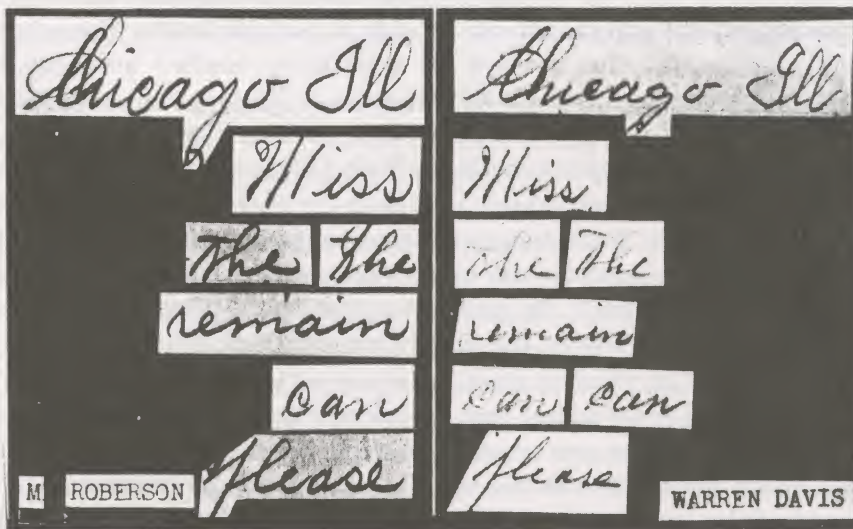 Chicago Ill
Miss
the the
remain
can
please
M ROBERSON
Chicago Ill
Miss
the the
remain
can can
please
WARREN DAVIS